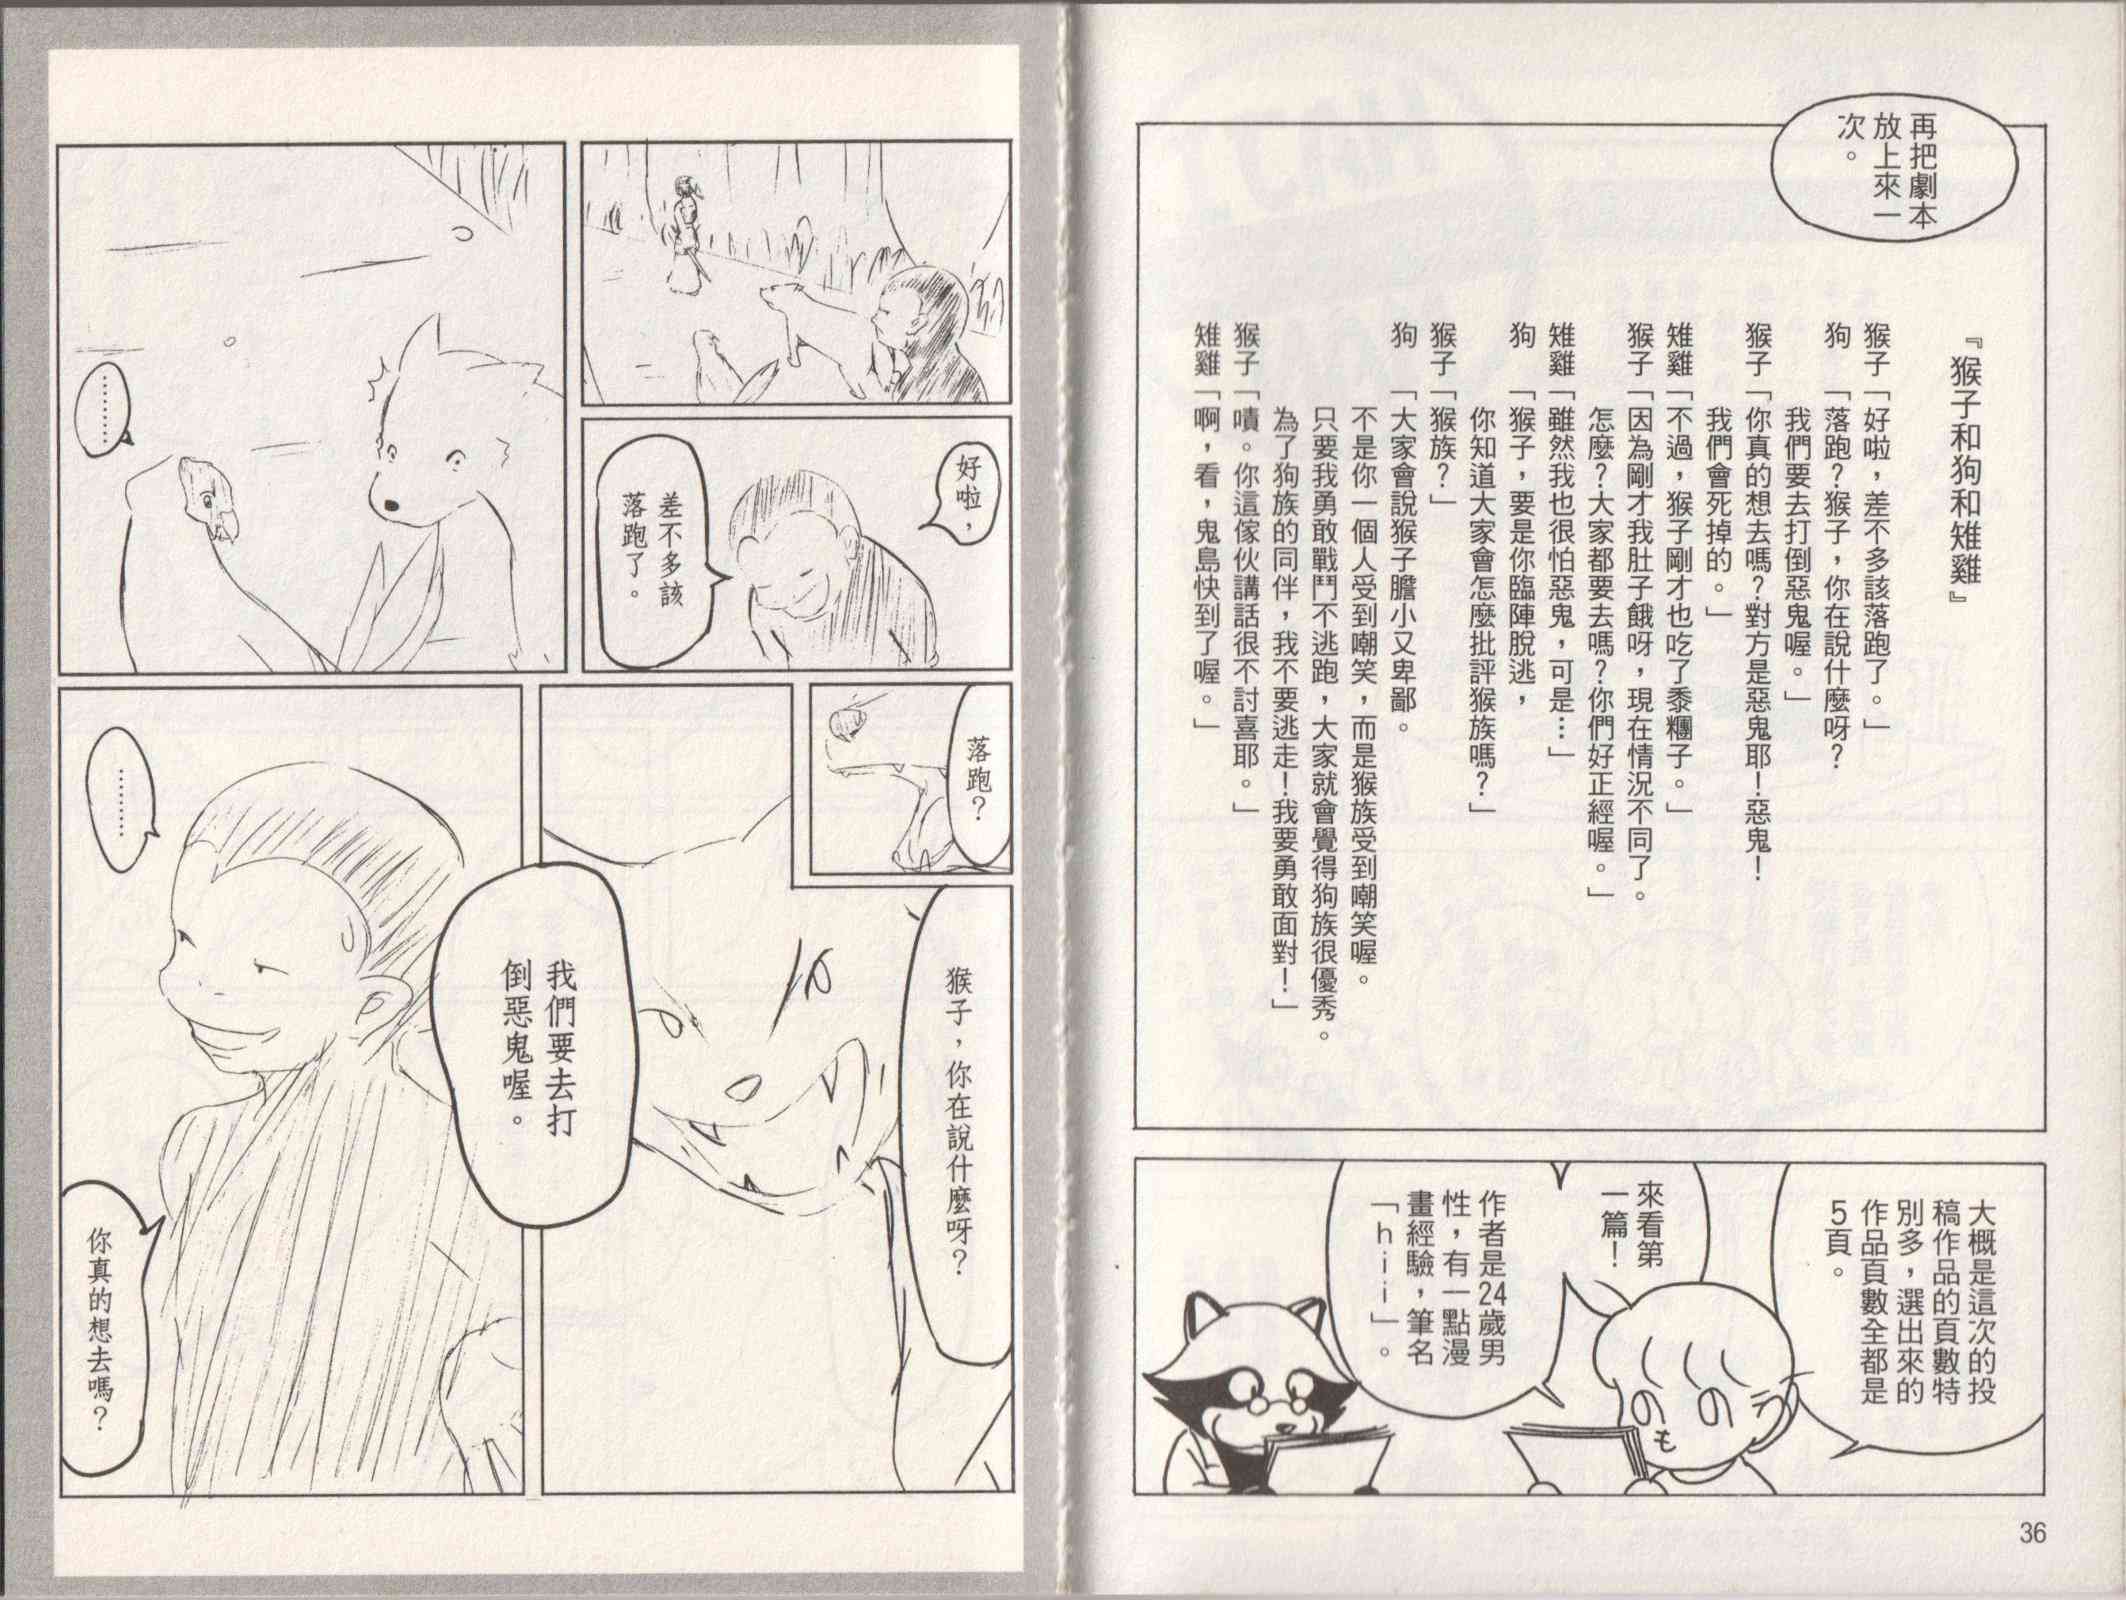 再把劇本
放上來一
次。
『猴子和狗和雉雞』
猴子「好啦，差不多該落跑了。」
狗　「落跑？猴子，你在說什麼呀？
我們要去打倒惡鬼喔。」
猴子「你真的想去嗎？對方是惡鬼耶！惡鬼！
我們會死掉的。」
雉雞「不過，猴子剛才也吃了黍糰子。」
猴子「因為剛才我肚子餓呀，現在情況不同了。
怎麼？大家都要去嗎？你們好正經喔。」
雉雞「雖然我也很怕惡鬼，可是…」
狗　「猴子，要是你臨陣脫逃，
你知道大家會怎麼批評猴族嗎？」
猴子「猴族？」
狗　「大家會說猴子膽小又卑鄙。
不是你一個人受到嘲笑，而是猴族受到嘲笑喔。
只要我勇敢戰鬥不逃跑，大家就會覺得狗族很優秀。
為了狗族的同伴，我不要逃走！我要勇敢面對！」
猴子「嘖。你這傢伙講話很不討喜耶。」
雉雞「啊，看，鬼島快到了喔。」
大概是這次的投
稿作品的頁數特
別多，選出來的
作品頁數全都是
5頁。
來看第
一篇！
作者是24歲男
性，有一點漫
畫經驗，筆名
「hiii」。
36
好啦，
差不多該
落跑了。
………
落跑？
猴子，你在說什麼呀？
我們要去打
倒惡鬼喔。
………
你真的想去嗎？